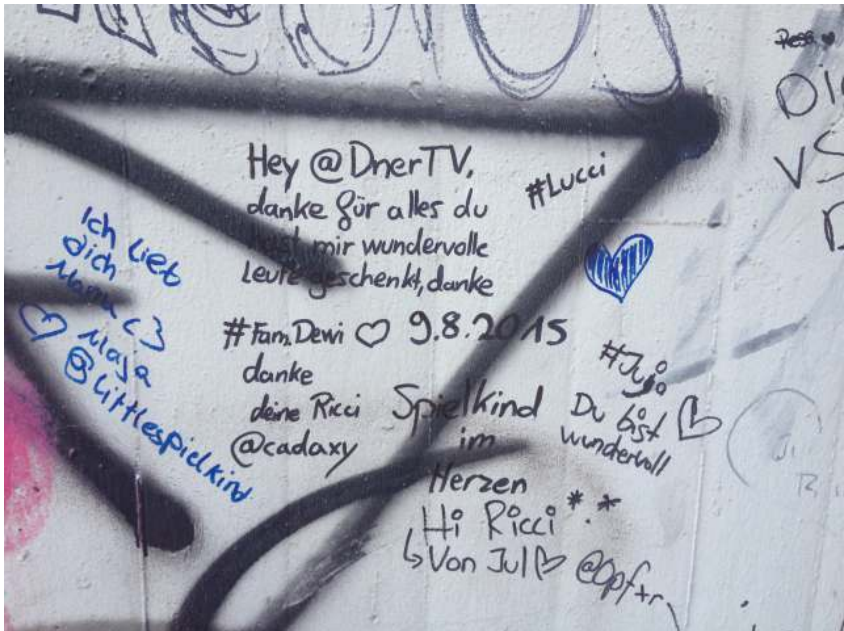 Hey @DnerTV,
danke für alles du
hast mir wundervolle
Leute geschenkt, danke
#Fam.Dewi ♡ 9.8.2015
danke
deine Ricci
@cadaxy
#Lucci
Ich lieb
dich
Mama <3
♡ Maja
@littlespielkind
Spielkind
im
Herzen
#Jujo
Du bist ♡
wundervoll
Hi Ricci *.*
↳Von Jul♡
VS